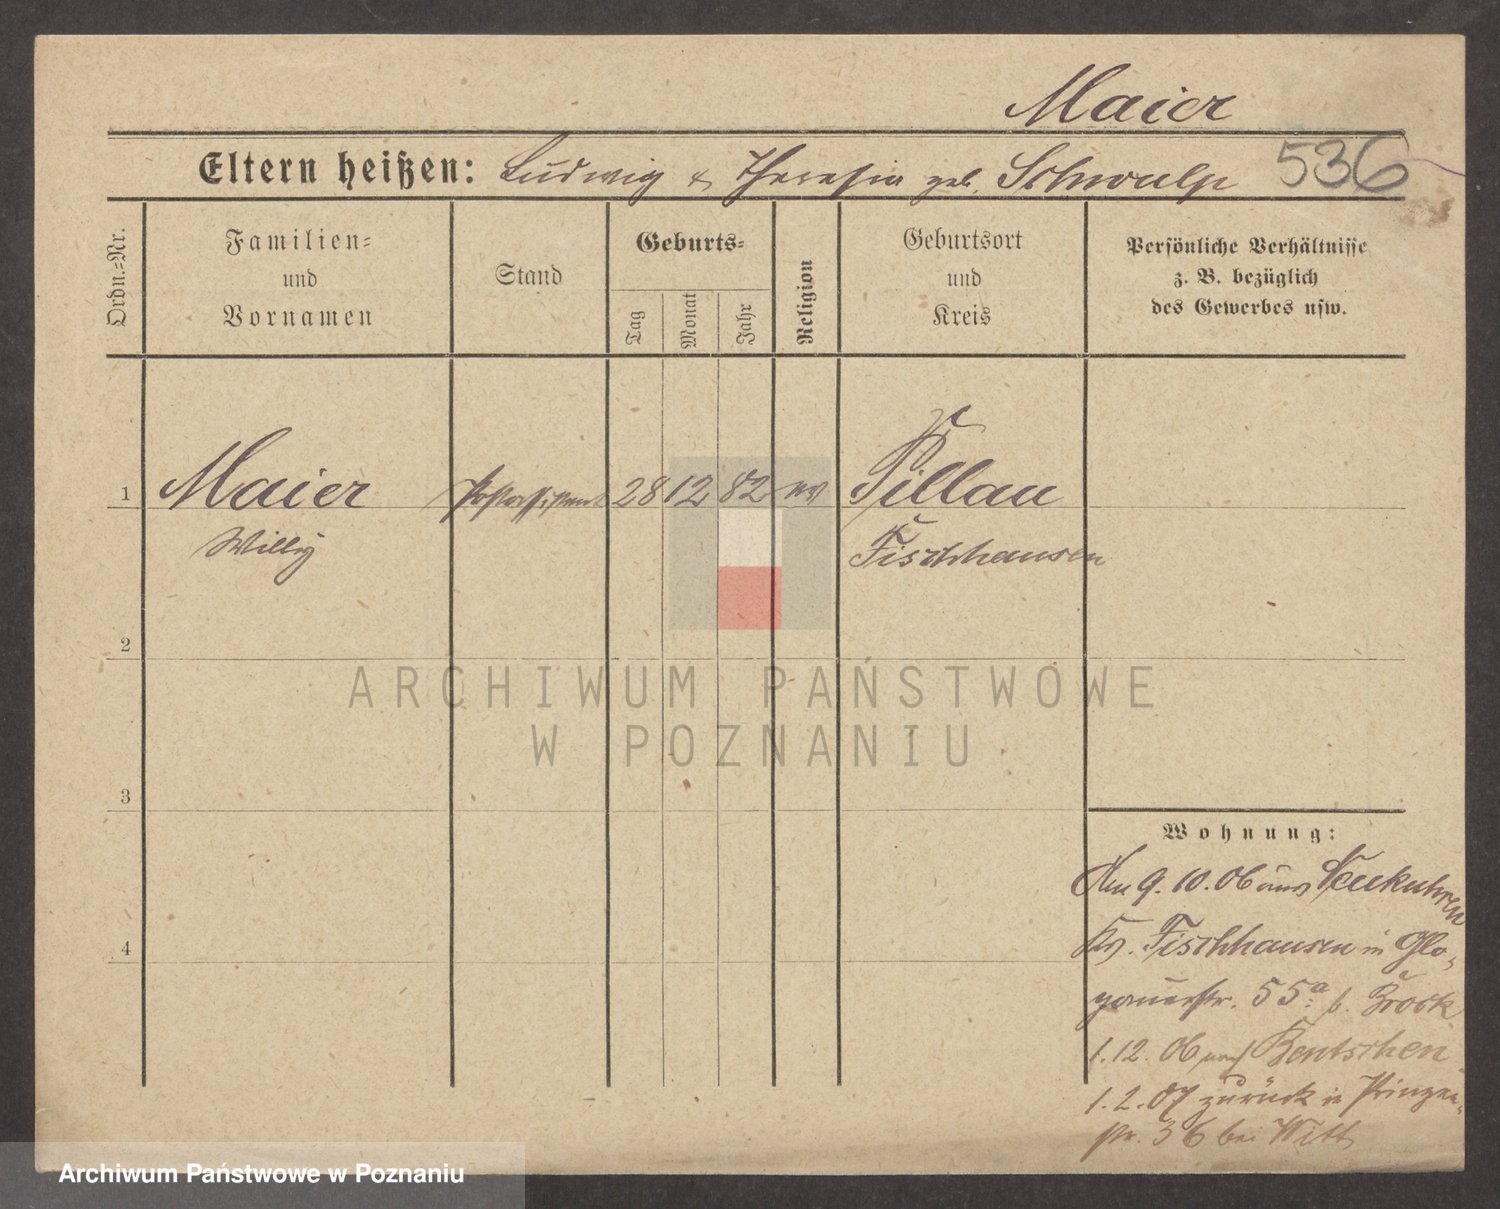 Maier
Eltern heißen: Ludwig & Theresia geb. Schwulp 536
Ordn.=Nr.
Familien=
und
Vornamen
Stand
Geburts=
Tag
Monat
Jahr
Religion
Geburtsort
und
Kreis
Persönliche Verhältnisse
z. B. bezüglich
des Gewerbes usw.
1 Maier Postassistent 28 12 82 ev Pillau
Willy Fischhausen
2
3
4
Wohnung:
Am 9. 10. 06 aus Neukuhren
Kr. Fischhausen in Glo-
gauerstr. 55a b. Brock
1. 12. 06 nach Bentschen
1. 2. 07 zurück in Prinzen-
str. 36 bei Witt
ARCHIWUM PAŃSTWOWE
W POZNANIU
Archiwum Państwowe w Poznaniu